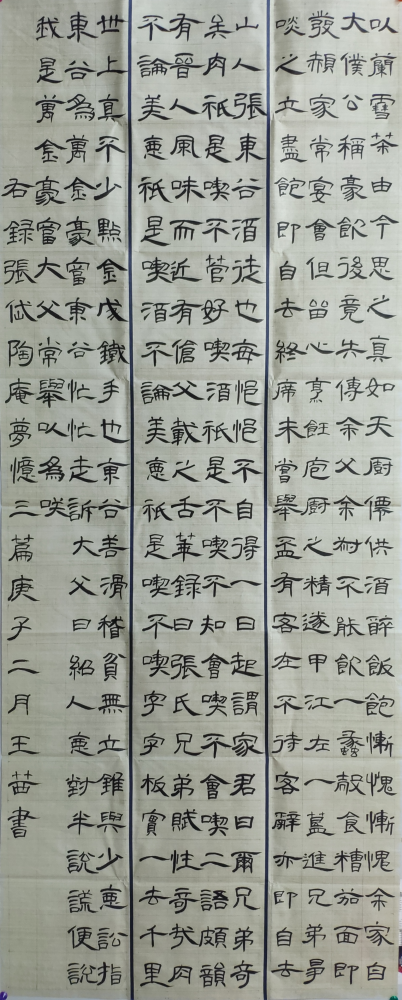 以蘭雪茶由今思之真如天厨僊供酒醉飯飽慚愧慚愧余家自
大僕公稱豪飲後竟失傳余父余尗不能飲一蠡殼食糟茄面即
發赬家常宴會但畱心烹飪庖厨之精遂甲江左一簋進兄弟爭
啖之立盡飽即自去終席未嘗舉盃有客在不待客辭亦即自去
山人張東谷酒徒也每悒悒不自得一日起謂家君曰爾兄弟奇
矣肉祇是喫不管好喫酒祇是不喫不知會喫不會喫二語頗韻
有晉人風味而近有傖父載之舌華錄曰張氏兄弟賦性奇哉肉
不論美惡祇是喫酒不論美惡祇是喫不喫字字板實一去千里
世上真不少點金成鐵手也東谷善滑稽貧無立錐與少惡訟指
東谷為萬金豪富東谷忙忙走訴大父曰紹人惡對半說謊便說
我是萬金豪富大父常舉以為咲
右錄張岱陶庵夢憶三篇庚子二月王茜書